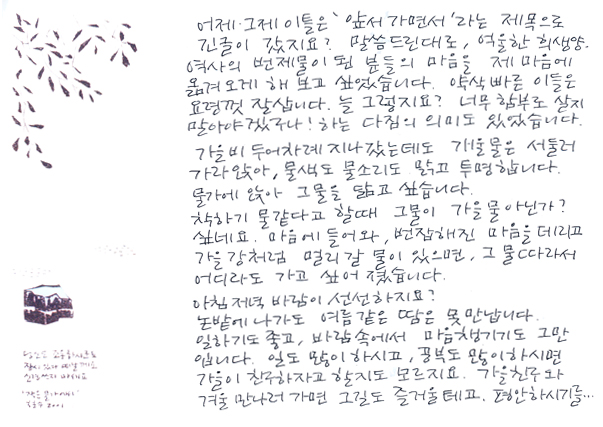 어제·그제 이틀은 '앞서 가면서'라는 제목으로
긴글이 갔지요? 말씀드린대로, 억울한 희생양.
역사의 번제물이 된 분들의 마음을 제 마음에
옮겨오게 해 보고 싶었습니다. 약삭빠른 이들은
요령껏 잘삽니다. 늘 그렇지요? 너무 함부로 살지
말아야겠구나! 하는 다짐의 의미도 있었습니다.
가을비 두어차례 지나갔는데도 개울물은 서둘러
가라앉아, 물색도 물소리도 맑고 투명합니다.
물가에 앉아 그물을 닮고 싶습니다.
착하기 물같다고 할때 그물이 가을물 아닌가?
싶네요. 마음에 들어와, 번잡해진 마음을 데리고
가을강처럼 멀리갈 물이 있으면, 그 물따라서
어디라도 가고 싶어 졌습니다.
아침저녁 바람이 선선하지요?
논밭에 나가도 여름같은 땀은 못만납니다.
일하기도 좋고, 바람속에서 마음챙기기도 그만
입니다. 일도 많이하시고, 공부도 많이하시면
가을이 친구하자고 할지도 모르지요. 가을친구와
겨울 만나러 가면 그길도 즐거울테고. 평안하시기를…
2001